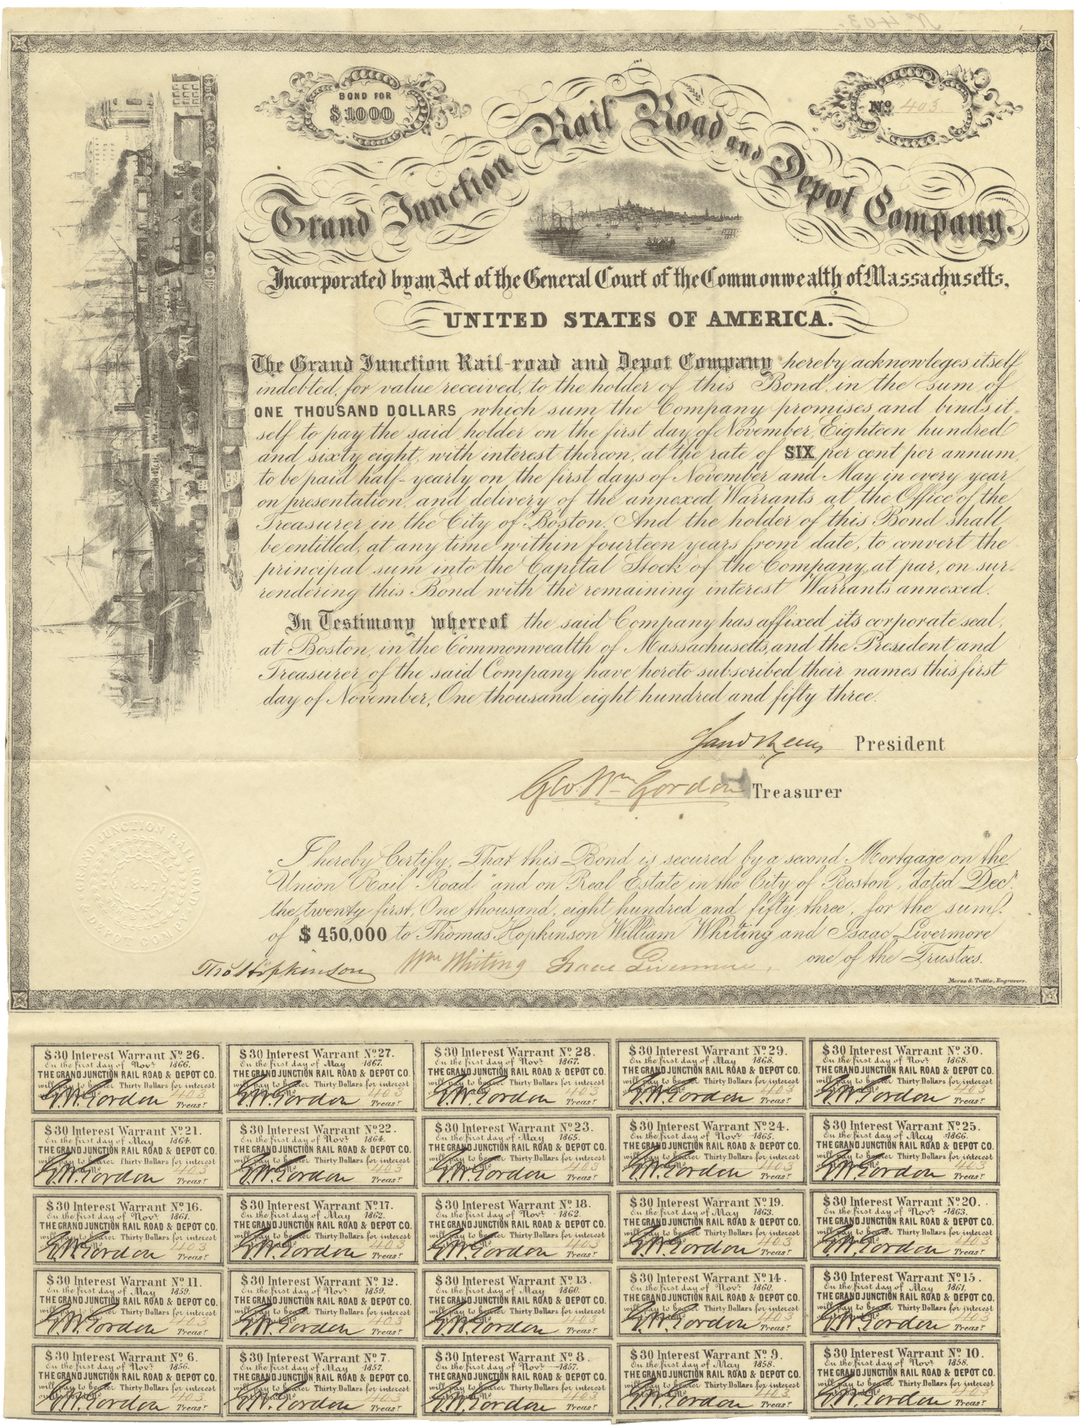 BOND FOR
$1000
No. 403
Grand Junction Rail Road and Depot Company.
Incorporated by an Act of the General Court of the Commonwealth of Massachusetts.
UNITED STATES OF AMERICA.
The Grand Junction Rail-road and Depot Company hereby acknowleges itself
indebted, for value received, to the holder of this Bond, in the sum of
ONE THOUSAND DOLLARS, which sum the Company promises and binds it-
self to pay the said holder on the first day of November, Eighteen hundred
and sixty eight, with interest thereon, at the rate of SIX per cent per annum
to be paid half-yearly on the first days of November and May in every year
on presentation and delivery of the annexed Warrants at the Office of the
Treasurer in the City of Boston. And the holder of this Bond shall
be entitled, at any time within fourteen years from date, to convert the
principal sum into the Capital Stock of the Company, at par, on sur-
rendering this Bond with the remaining interest Warrants annexed.
In Testimony whereof the said Company has affixed its corporate seal,
at Boston, in the Commonwealth of Massachusetts, and the President and
Treasurer of the said Company have hereto subscribed their names this first
day of November, One thousand eight hundred and fifty three.
President
Geo. Wm. Gordon Treasurer
I hereby Certify, That this Bond is secured by a second Mortgage on the
"Union Rail Road" and on Real Estate in the City of Boston, dated Decr.
the twenty first, One thousand, eight hundred and fifty three, for the sum
of $450,000 to Thomas Hopkinson William Whiting and Isaac Livermore
one of the Trustees.
Tho. Hopkinson Wm Whiting Isaac Livermore,
Morse & Tuttle, Engravers.
$30 Interest Warrant No. 26. $30 Interest Warrant No. 27. $30 Interest Warrant No. 28. $30 Interest Warrant No. 29. $30 Interest Warrant No. 30.
On the first day of Novr. 1866. On the first day of May 1867. On the first day of Novr. 1867. On the first day of May 1868. On the first day of Novr. 1868.
THE GRAND JUNCTION RAIL ROAD & DEPOT CO. THE GRAND JUNCTION RAIL ROAD & DEPOT CO. THE GRAND JUNCTION RAIL ROAD & DEPOT CO. THE GRAND JUNCTION RAIL ROAD & DEPOT CO. THE GRAND JUNCTION RAIL ROAD & DEPOT CO.
will pay to bearer Thirty Dollars for interest will pay to bearer Thirty Dollars for interest will pay to bearer Thirty Dollars for interest will pay to bearer Thirty Dollars for interest will pay to bearer Thirty Dollars for interest
403 403 403 403 403
G.W. Gordon Treasr. G.W. Gordon Treasr. G.W. Gordon Treasr. G.W. Gordon Treasr. G.W. Gordon Treasr.
$30 Interest Warrant No. 21. $30 Interest Warrant No. 22. $30 Interest Warrant No. 23. $30 Interest Warrant No. 24. $30 Interest Warrant No. 25.
On the first day of May 1864. On the first day of Novr. 1864. On the first day of May 1865. On the first day of Novr. 1865. On the first day of May 1866.
THE GRAND JUNCTION RAIL ROAD & DEPOT CO. THE GRAND JUNCTION RAIL ROAD & DEPOT CO. THE GRAND JUNCTION RAIL ROAD & DEPOT CO. THE GRAND JUNCTION RAIL ROAD & DEPOT CO. THE GRAND JUNCTION RAIL ROAD & DEPOT CO.
will pay to bearer Thirty Dollars for interest will pay to bearer Thirty Dollars for interest will pay to bearer Thirty Dollars for interest will pay to bearer Thirty Dollars for interest will pay to bearer Thirty Dollars for interest
403 403 403 403 403
G.W. Gordon Treasr. G.W. Gordon Treasr. G.W. Gordon Treasr. G.W. Gordon Treasr. G.W. Gordon Treasr.
$30 Interest Warrant No. 16. $30 Interest Warrant No. 17. $30 Interest Warrant No. 18. $30 Interest Warrant No. 19. $30 Interest Warrant No. 20.
On the first day of Novr. 1861. On the first day of May 1862. On the first day of Novr. 1862. On the first day of May 1863. On the first day of Novr. 1863.
THE GRAND JUNCTION RAIL ROAD & DEPOT CO. THE GRAND JUNCTION RAIL ROAD & DEPOT CO. THE GRAND JUNCTION RAIL ROAD & DEPOT CO. THE GRAND JUNCTION RAIL ROAD & DEPOT CO. THE GRAND JUNCTION RAIL ROAD & DEPOT CO.
will pay to bearer Thirty Dollars for interest will pay to bearer Thirty Dollars for interest will pay to bearer Thirty Dollars for interest will pay to bearer Thirty Dollars for interest will pay to bearer Thirty Dollars for interest
403 403 403 403 403
G.W. Gordon Treasr. G.W. Gordon Treasr. G.W. Gordon Treasr. G.W. Gordon Treasr. G.W. Gordon Treasr.
$30 Interest Warrant No. 11. $30 Interest Warrant No. 12. $30 Interest Warrant No. 13. $30 Interest Warrant No. 14. $30 Interest Warrant No. 15.
On the first day of May 1859. On the first day of Novr. 1859. On the first day of May 1860. On the first day of Novr. 1860. On the first day of May 1861.
THE GRAND JUNCTION RAIL ROAD & DEPOT CO. THE GRAND JUNCTION RAIL ROAD & DEPOT CO. THE GRAND JUNCTION RAIL ROAD & DEPOT CO. THE GRAND JUNCTION RAIL ROAD & DEPOT CO. THE GRAND JUNCTION RAIL ROAD & DEPOT CO.
will pay to bearer Thirty Dollars for interest will pay to bearer Thirty Dollars for interest will pay to bearer Thirty Dollars for interest will pay to bearer Thirty Dollars for interest will pay to bearer Thirty Dollars for interest
403 403 403 403 403
G.W. Gordon Treasr. G.W. Gordon Treasr. G.W. Gordon Treasr. G.W. Gordon Treasr. G.W. Gordon Treasr.
$30 Interest Warrant No. 6. $30 Interest Warrant No. 7. $30 Interest Warrant No. 8. $30 Interest Warrant No. 9. $30 Interest Warrant No. 10.
On the first day of Novr. 1856. On the first day of May 1857. On the first day of Novr. 1857. On the first day of May 1858. On the first day of Novr. 1858.
THE GRAND JUNCTION RAIL ROAD & DEPOT CO. THE GRAND JUNCTION RAIL ROAD & DEPOT CO. THE GRAND JUNCTION RAIL ROAD & DEPOT CO. THE GRAND JUNCTION RAIL ROAD & DEPOT CO. THE GRAND JUNCTION RAIL ROAD & DEPOT CO.
will pay to bearer Thirty Dollars for interest will pay to bearer Thirty Dollars for interest will pay to bearer Thirty Dollars for interest will pay to bearer Thirty Dollars for interest will pay to bearer Thirty Dollars for interest
403 403 403 403 403
G.W. Gordon Treasr. G.W. Gordon Treasr. G.W. Gordon Treasr. G.W. Gordon Treasr. G.W. Gordon Treasr.